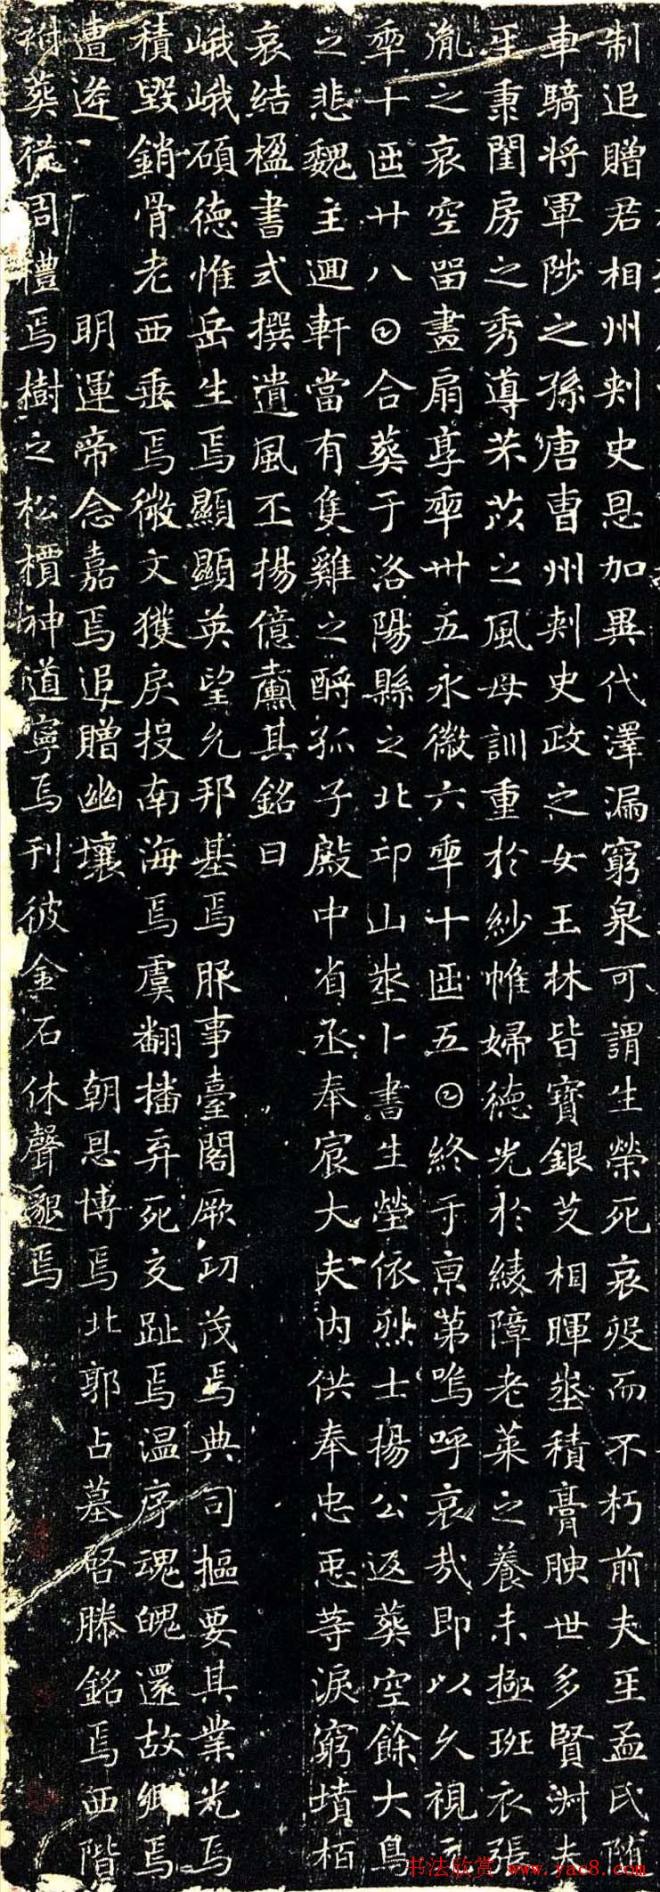 制追贈君相州刾史恩加異代澤漏窮泉可謂生榮死哀歿而不朽前夫𤯔孟氏隋
車騎將軍陟之孫唐曹州刾史政之女玉林皆寶銀艾相暉埊積膏腴世多賢淑夫
𤯔秉閨房之秀導芣苡之風母訓重於紗帷婦德光於綾障老萊之養未極班衣張
胤之哀空留畫扇享𠡦卌五永徽六𠡦十𠥱五𡆠終于京第嗚呼哀哉即以久視元
𠡦十𠥱廿八𡆠合葬于洛陽縣之北邙山埊卜書生塋依烈士揚公返葬空餘大鳥
之悲魏主迴軒當有隻雞之酹孤子殿中省丞奉宸大夫內供奉忠𢘑等淚窮墳栢
哀結楹書式撰遺風丕揚億𡕀其銘曰
峨峨碩德惟岳生焉顯顯英望允邦基焉服事臺閣厥功茂焉典司樞要其業光焉
積毀銷骨老西垂焉微文獲戾投南海焉虞翻播弃死交趾焉溫序魂魄還故鄉焉
遭逢 明運帝念嘉焉追贈幽壤 朝恩博焉北郭占墓啓滕銘焉西階
祔葬從周禮焉樹之松檟神道寧焉刊彼金石休聲邈焉
书法欣赏 www.yac8.com